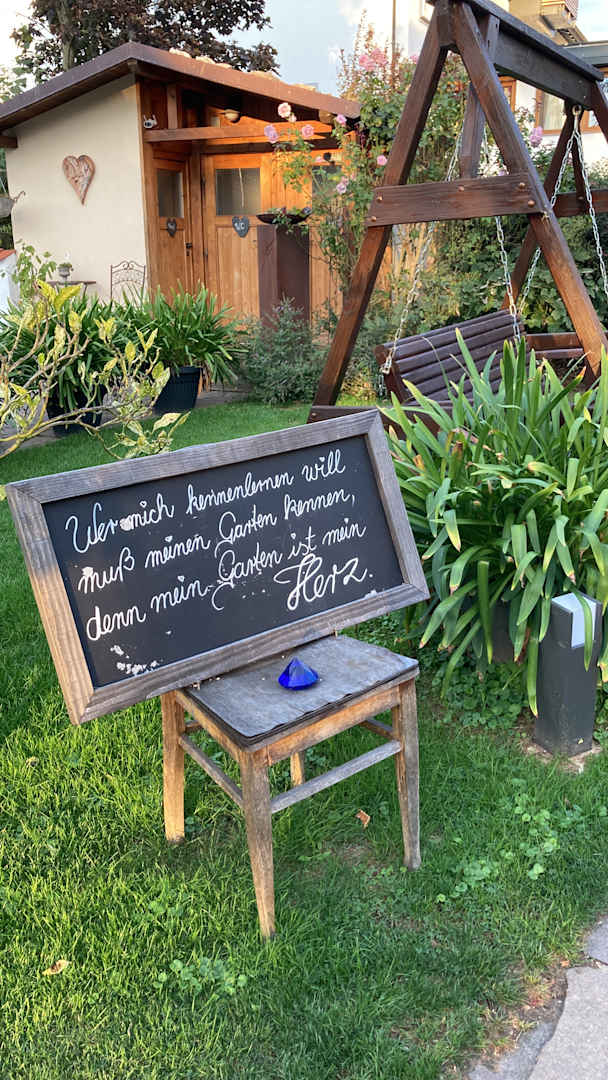 Wer mich kennenlernen will
muß meinen Garten kennen,
denn mein Garten ist mein
Herz.
WC